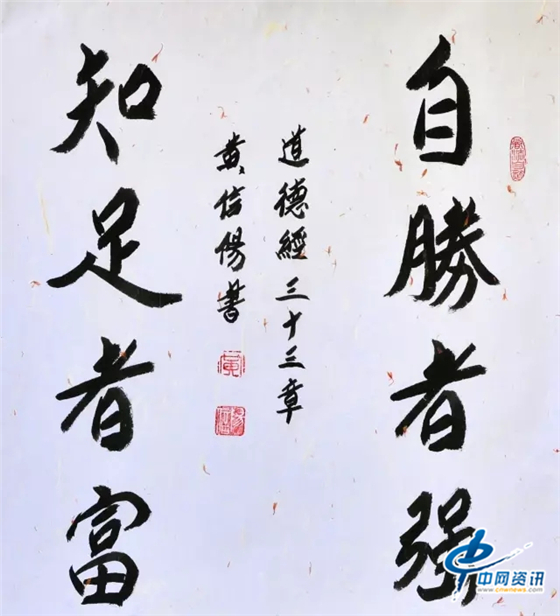 自勝者强
道德經三十三章
黄信陽書
知足者富
中网资讯
www.cnewnews.com